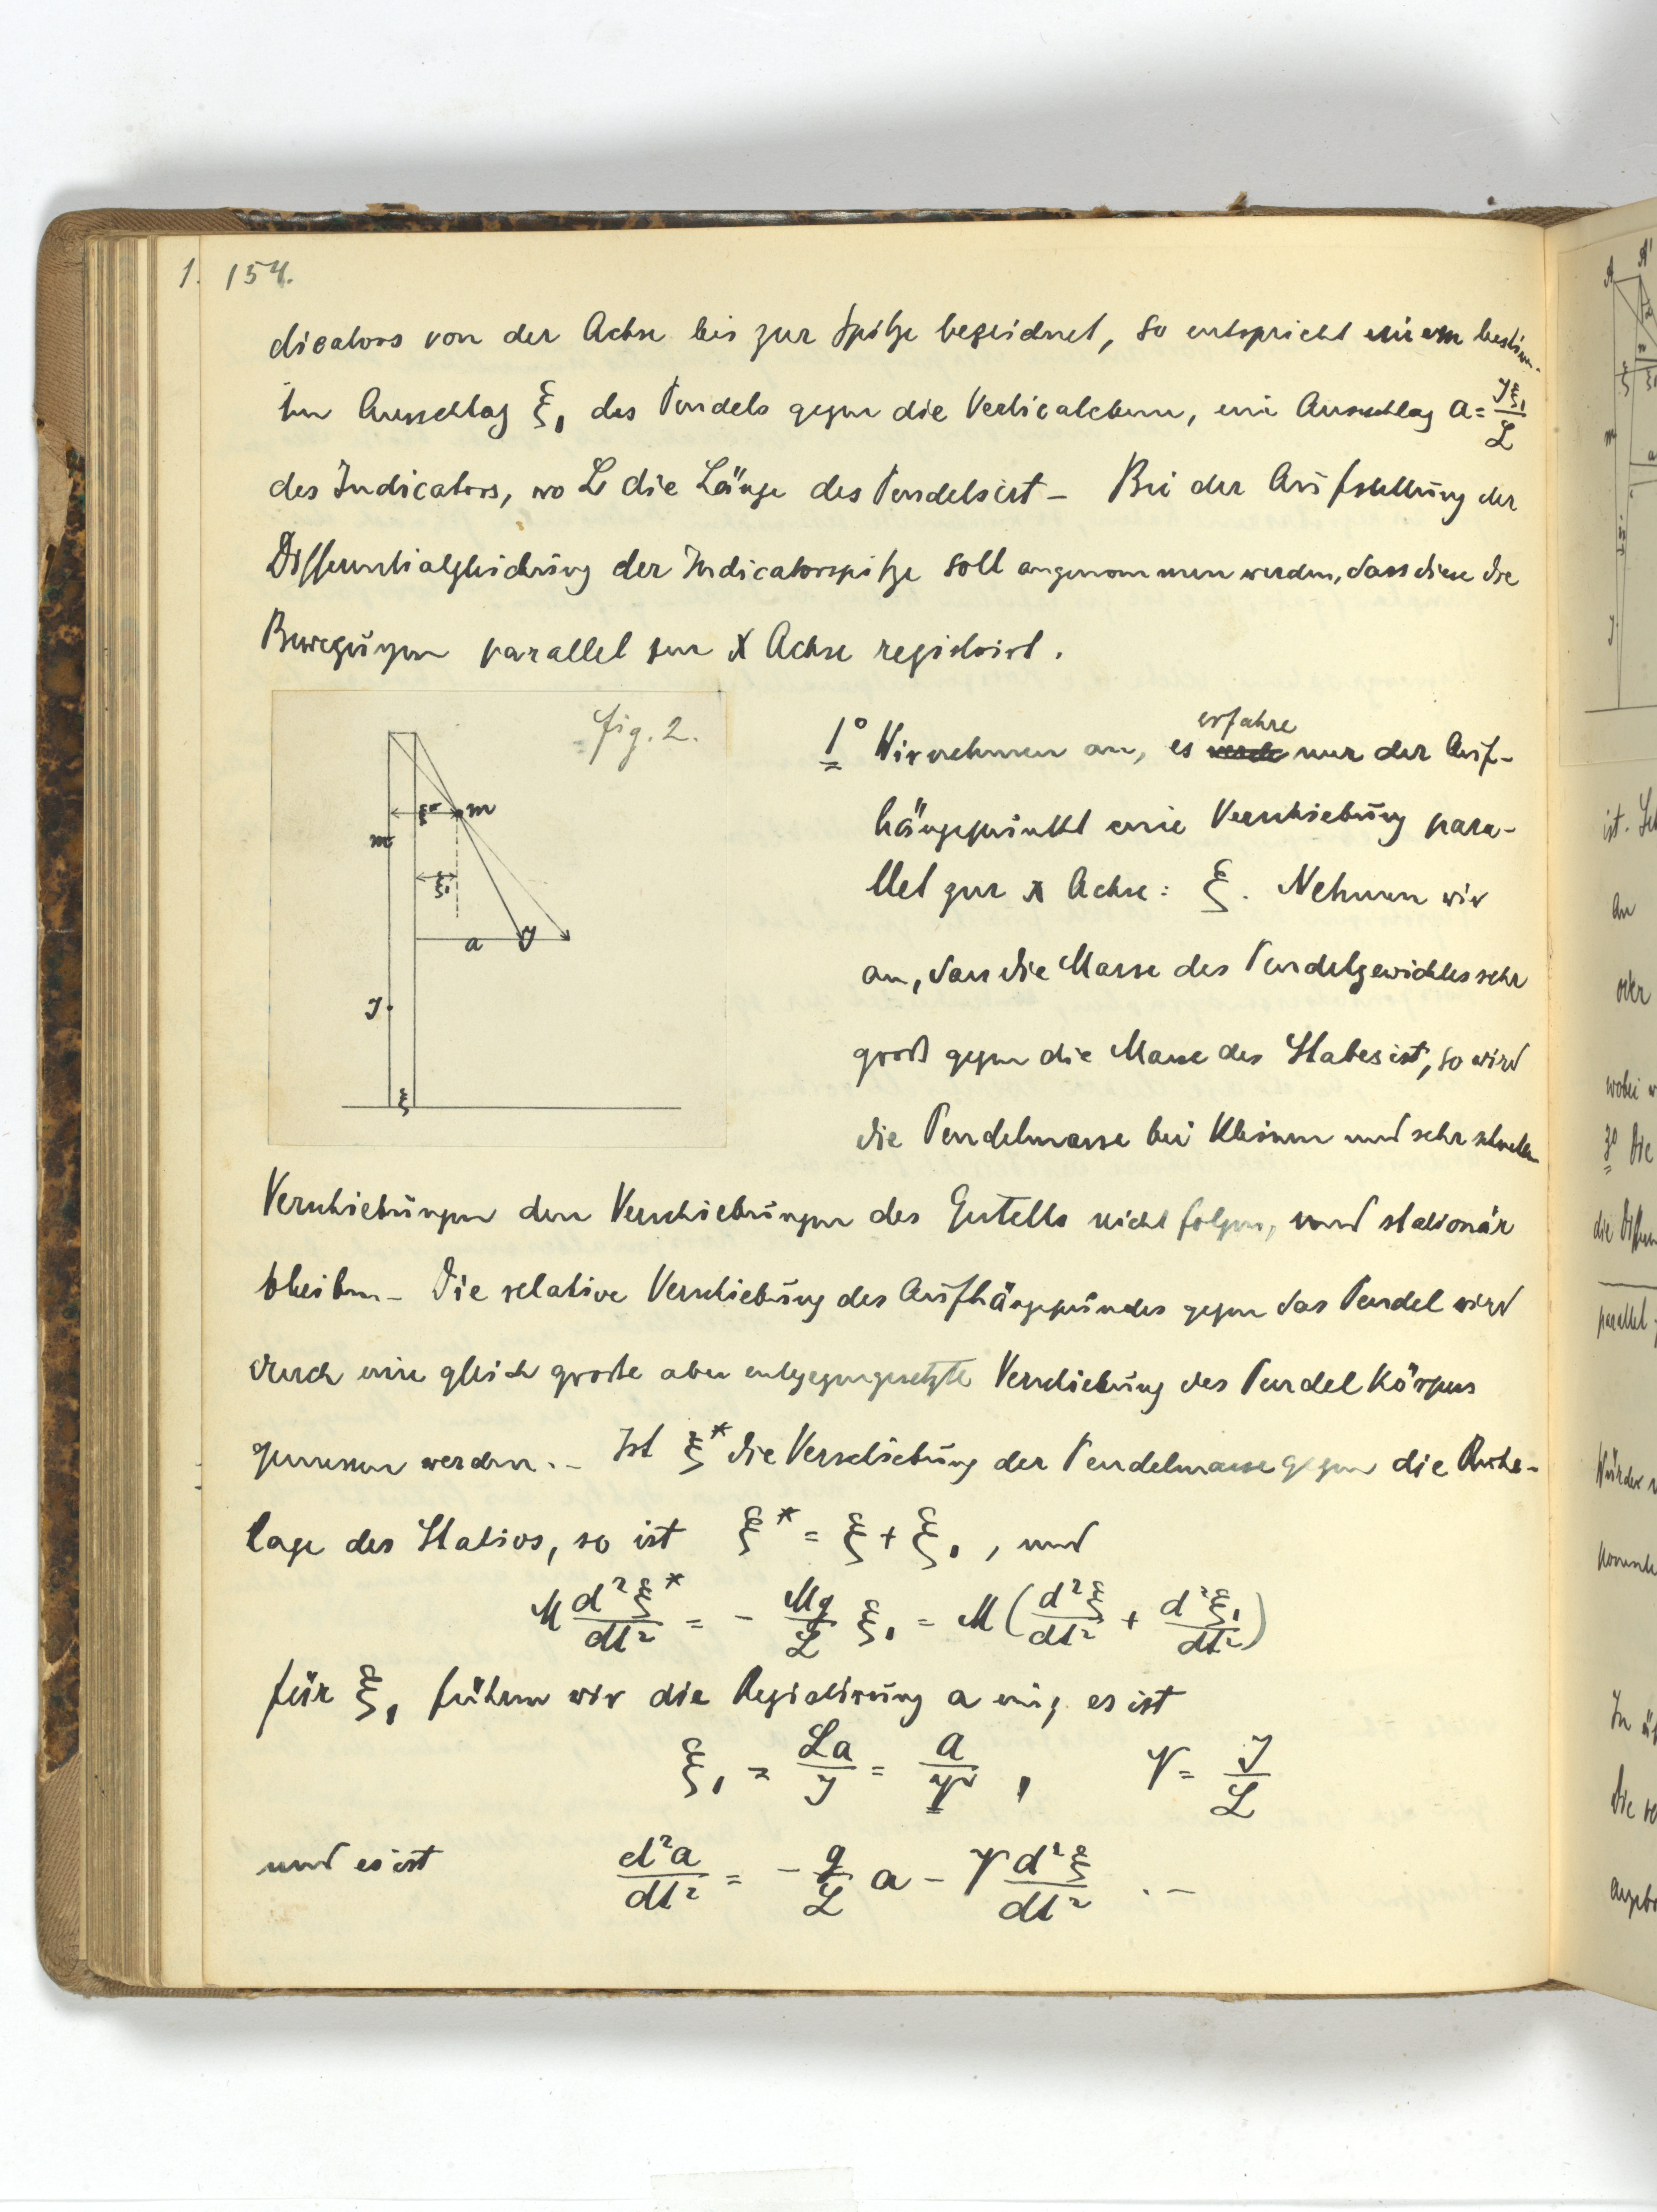 1. 154.
dicators von der Achse bis zur Spitze bezeichnet, so entspricht einem bestim-
ten Ausschlag ξ₁ des Pendels gegen die Verticalebene, ein Ausschlag a = Jξ₁/L
des Indicators, wo L die Länge des Pendels ist – Bei der Aufstellung der
Differentialgleichung der Indicatorspitze soll angenommen werden, dass diese die
Bewegungen parallel zur X Achse registrirt.
fig. 2.
ξ* m
m
ξ₁
a J
J
ξ
1° Wir nehmen an, es erfahre nur der Auf-
hängepunkt eine Verschiebung para-
llel zur x Achse: ξ. Nehmen wir
an, dass die Masse des Pendelgewichtes sehr
groß gegen die Masse des Stabes ist, so wird
die Pendelmasse bei kleinen und sehr schnellen
Verschiebungen den Verschiebungen des Gestells nicht folgen, und stationär
bleiben – Die relative Verschiebung des Aufhängepunktes gegen das Pendel wird
durch eine gleich große aber entgegengesetzte Verschiebung des Pendelkörpers
gemessen werden. – Ist ξ* die Verschiebung der Pendelmasse gegen die Ruhe-
lage des Stativs, so ist ξ* = ξ + ξ₁, und
M d²ξ*/dt² = - Mg/L ξ₁ = M(d²ξ/dt² + d²ξ₁/dt²)
für ξ₁ führen wir die Registrirung a ein, es ist
ξ₁ = La/J = a/V, V = J/L
und es ist d²a/dt² = - g/L a - V d²ξ/dt² . –
A A'
ξ
m
a
J
ist.
An
oder
wobei
3° Die
die
parallel
Würde
In
Die